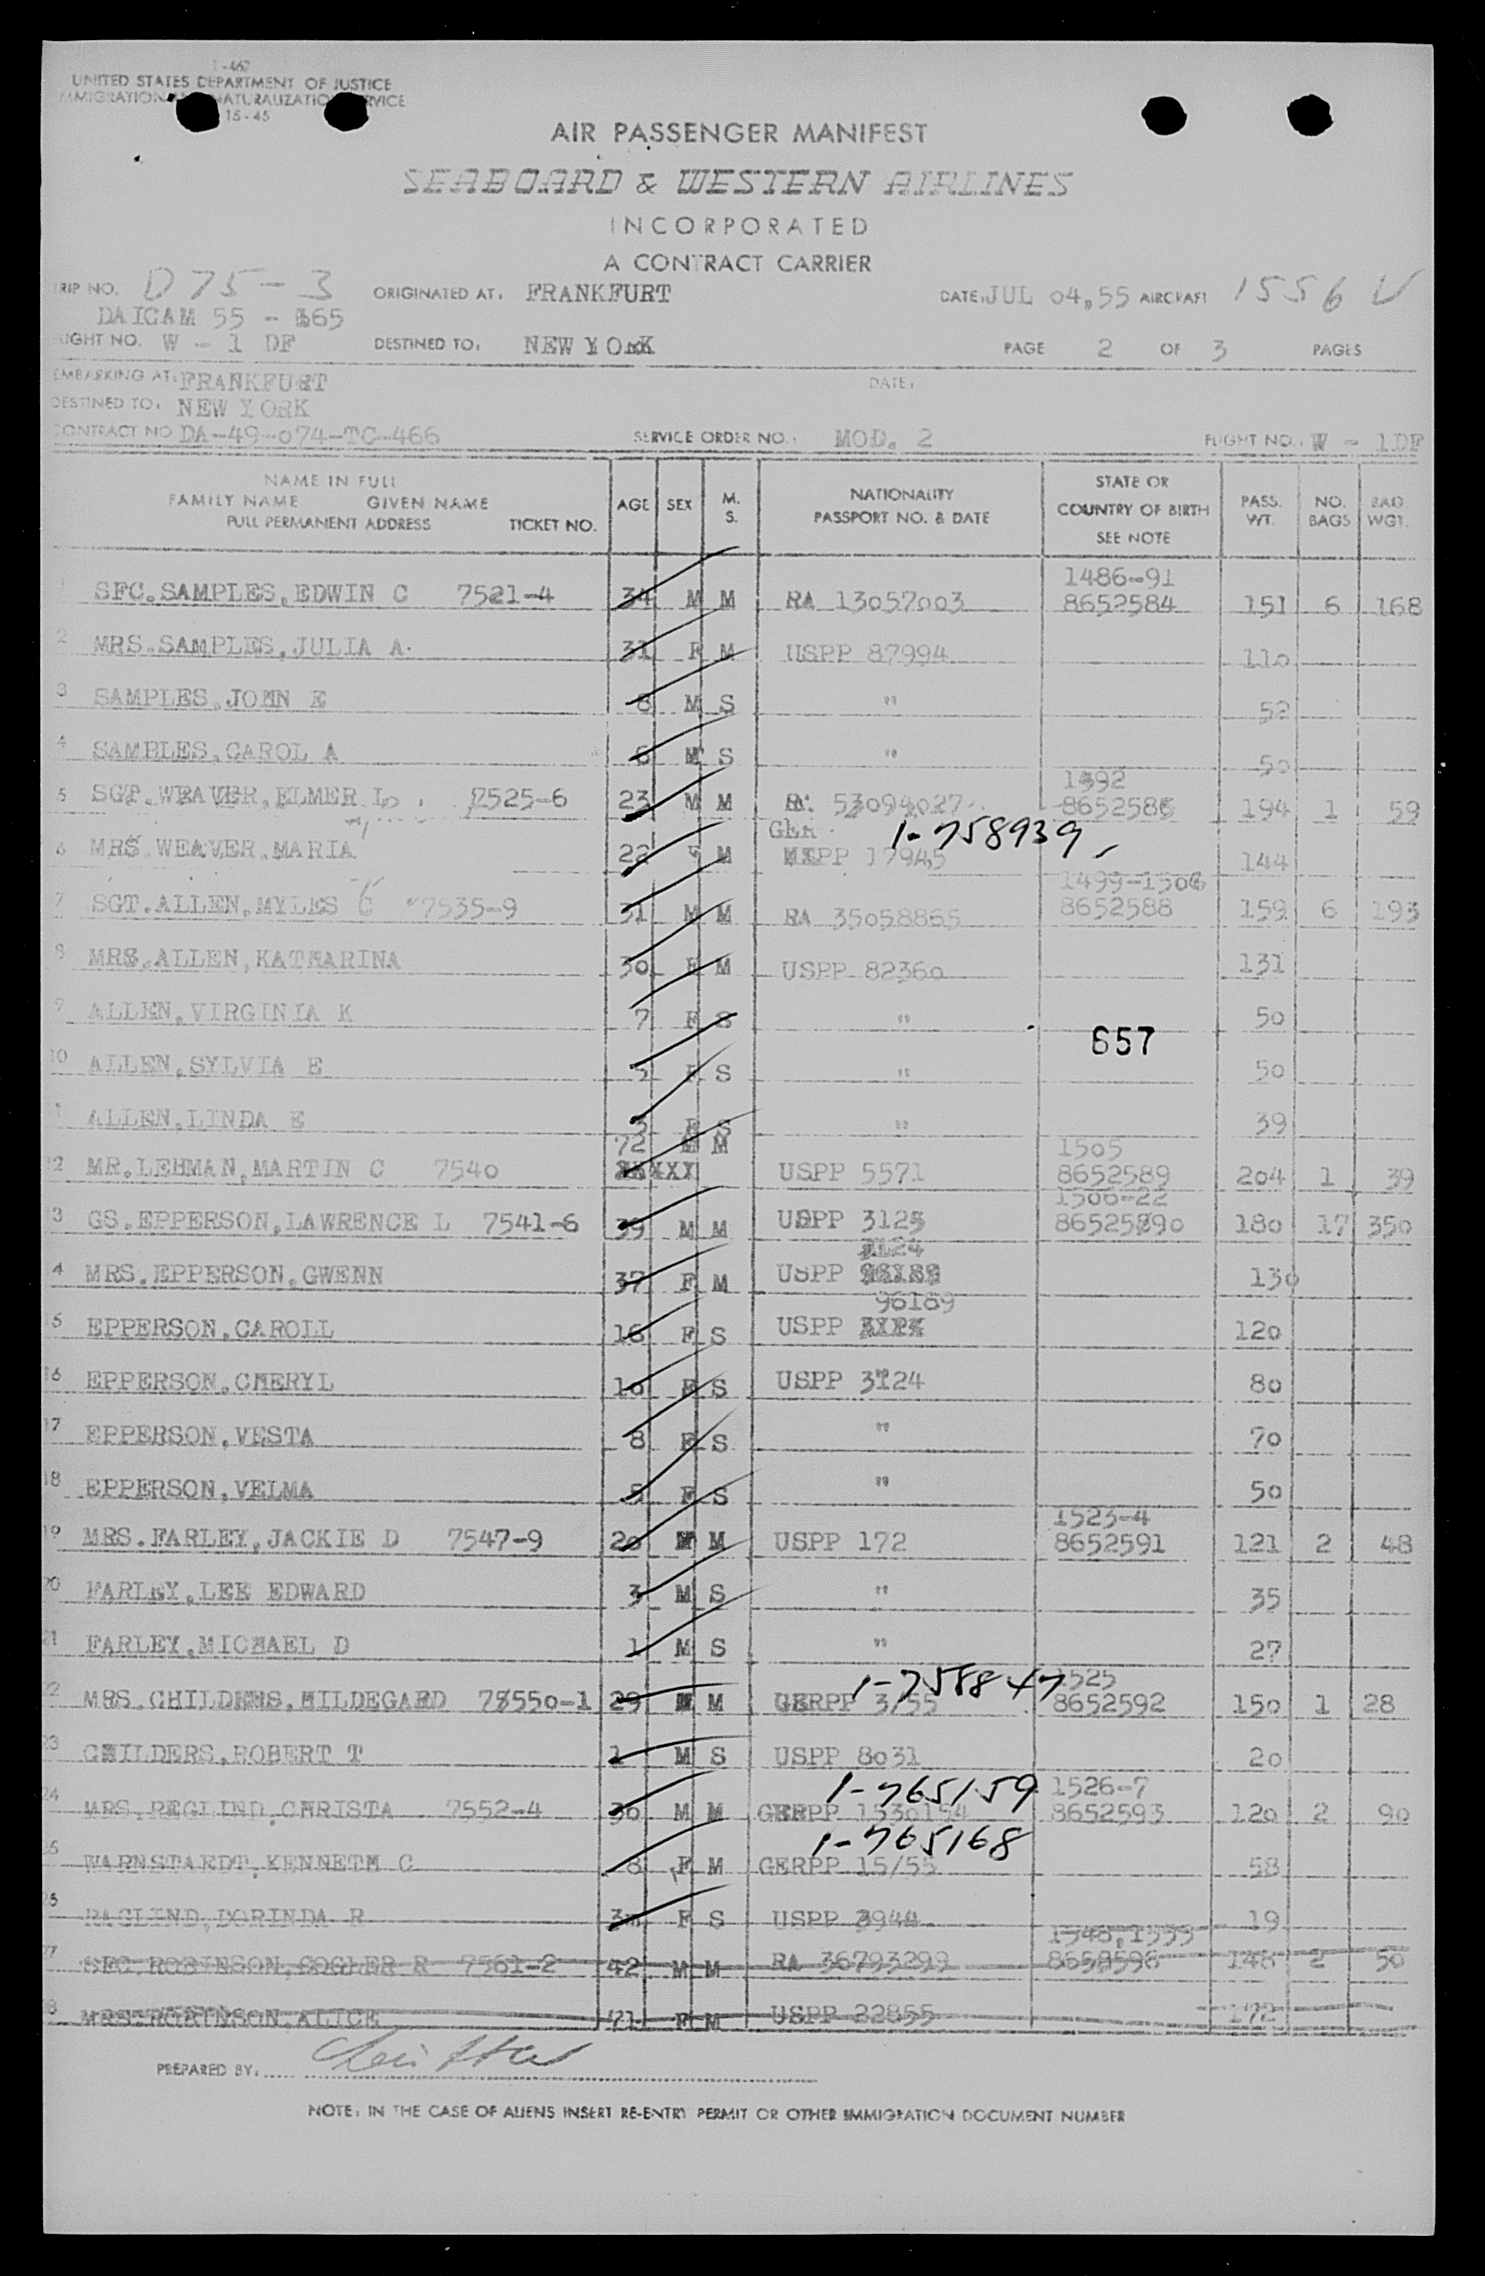 I-467
UNITED STATES DEPARTMENT OF JUSTICE
15-45
AIR PASSENGER MANIFEST
SEABOARD & WESTERN AIRLINES
INCORPORATED
A CONTRACT CARRIER
TRIP NO. D 75-3 ORIGINATED AT: FRANKFURT DATE: JUL 04,55 AIRCRAFT 1556 V
DAICAM 55 - 165
FLIGHT NO. W - 1 DF DESTINED TO: NEW YORK PAGE 2 OF 3 PAGES
EMBARKING AT: FRANKFURT DATE:
DESTINED TO: NEW YORK
CONTRACT NO DA-49-074-TC-466 SERVICE ORDER NO.: MOD. 2 FLIGHT NO.: W - 1DF
NAME IN FULL
FAMILY NAME GIVEN NAME
FULL PERMANENT ADDRESS TICKET NO. AGE SEX M. S. NATIONALITY PASSPORT NO. & DATE STATE OR COUNTRY OF BIRTH SEE NOTE PASS. WT. NO. BAGS BAG WGT.
1486-91
1 SFC.SAMPLES,EDWIN C 7521-4 34 M M RA 13057003 8652584 151 6 168
2 MRS.SAMPLES,JULIA A. 31 F M USPP 87994 110
3 SAMPLES,JOHN E 8 M S " 52
4 SAMPLES,CAROL A 6 M S " 50
1492
5 SGT.WEAVER,ELMER L. 7525-6 23 M M 53094027 865258 194 1 59
GER 1-758939
6 MRS WEAVER.MARIA 22 F M PP 17945 144
1499-150
7 SGT.ALLEN,MYLES C 7535-9 31 M M RA 35058865 8652588 159 6 193
8 MRS.ALLEN,KATHARINA 30 F M USPP 82360 131
9 ALLEN,VIRGINIA K 7 F S " 50
657
10 ALLEN,SYLVIA E 5 F S " 50
11 ALLEN,LINDA E 3 F S " 39
72 M M 1505
12 MR.LEHMAN,MARTIN C 7540 USPP 5571 8652589 204 1 39
1506-22
13 GS.EPPERSON,LAWRENCE L 7541-6 39 M M USPP 3125 8652590 180 17 350
3124
14 MRS.EPPERSON,GWENN 37 F M USPP 130
96189
15 EPPERSON,CAROLL 16 F S USPP 120
16 EPPERSON,CHERYL 10 F S USPP 3124 80
17 EPPERSON,VESTA 8 F S " 70
18 EPPERSON,VELMA 5 F S " 50
1523-4
19 MRS.FARLEY,JACKIE D 7547-9 20 M USPP 172 8652591 121 2 48
20 FARLEY,LEE EDWARD 3 M S " 35
21 FARLEY,MICHAEL D 1 M S " 27
1-758847 1525
22 MRS.CHILDERS,HILDEGARD 7550-1 29 M GERPP 3/55 8652592 150 1 28
23 CHILDERS,ROBERT T 1 M S USPP 8031 20
1-765159 1526-7
24 MRS.REGLIND,CHRISTA 7552-4 30 M M GERPP 1530154 8652593 120 2 90
1-765168
25 WARNSTAEDT,KENNETH C 8 F M GERPP 15/55 58
26 RAGLIND,DORINDA R F S USPP 3944 19
27 SFC.ROBINSON, R 7561-2 42 M M RA 36793299 148 2 50
28 MRS.ROBINSON,ALICE F M USPP 22855 172
PREPARED BY:
NOTE: IN THE CASE OF ALIENS INSERT RE-ENTRY PERMIT OR OTHER IMMIGRATION DOCUMENT NUMBER